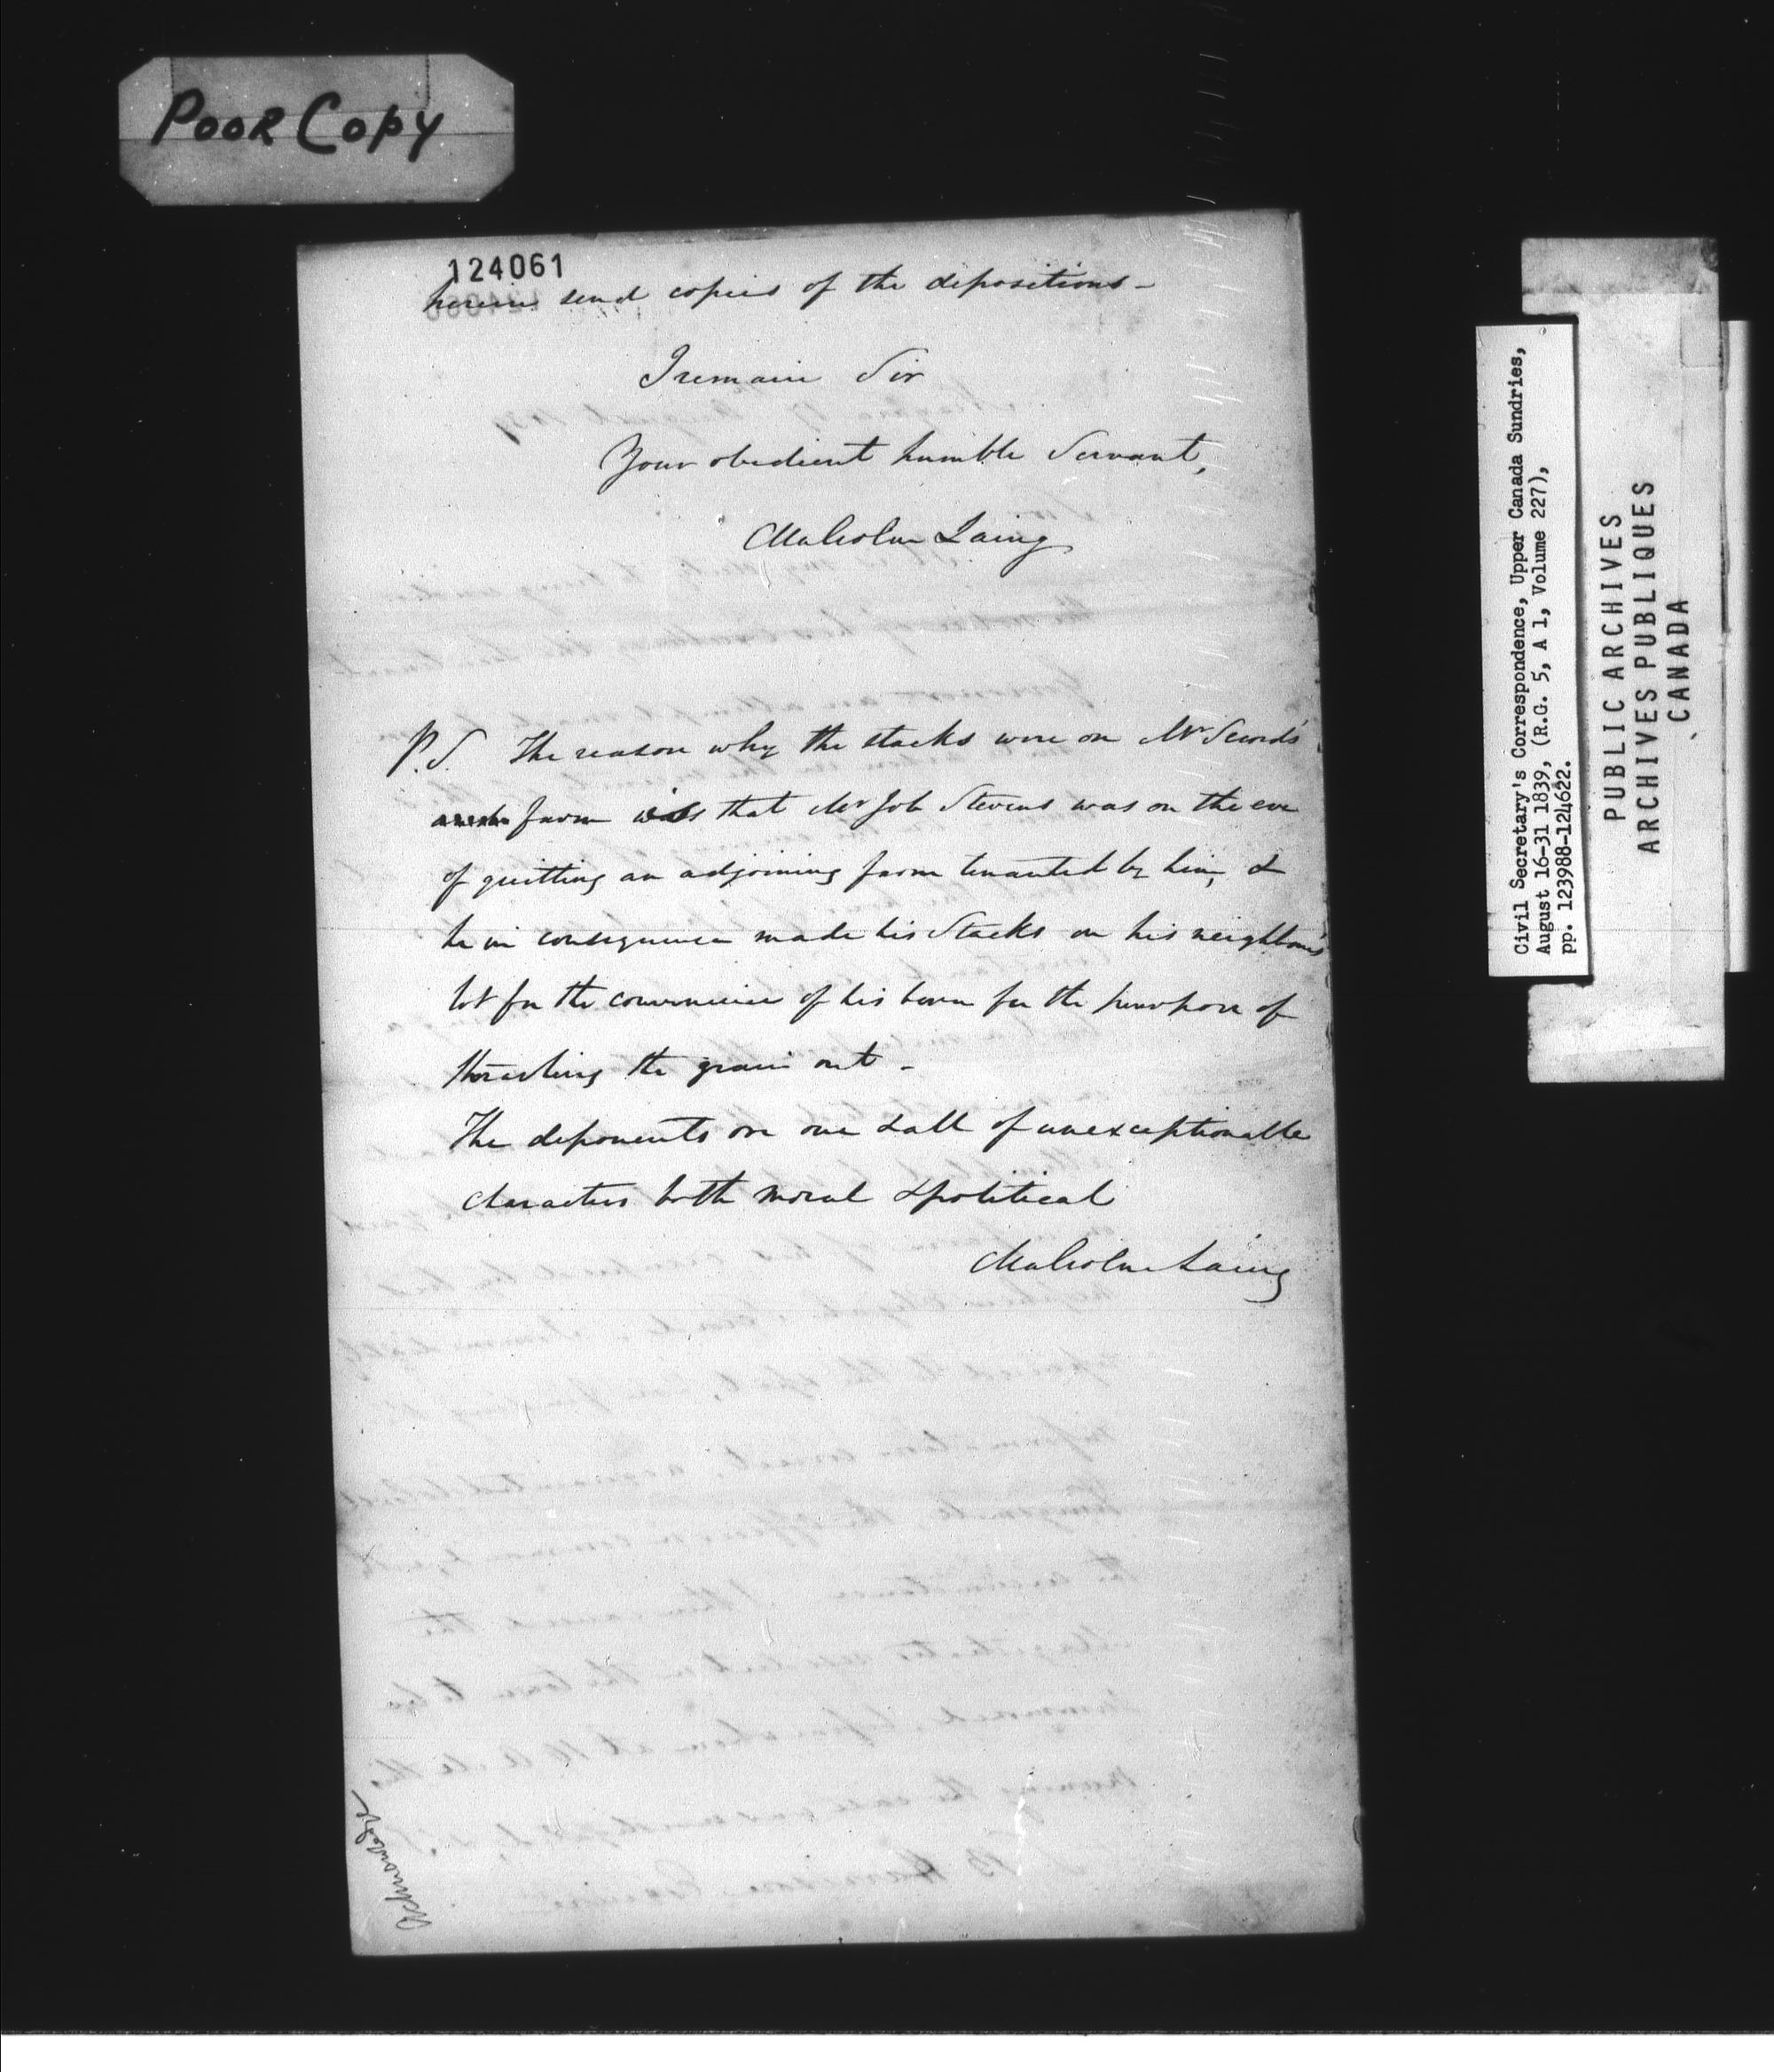 POOR COPY
124061
herein send copies of the depositions -
I remain Sir
Your obedient humble Servant,
Malcolm Laing
P.S. The reason why the stacks were on Mr Secord's
farm was that Mr Job Stevens was on the eve
of quitting an adjoining farm tenanted by him, &
he in consequence made his Stacks on his neighbour's
lot for the convenience of his barn for the purpose of
thrashing the grain out -
The deponents are one & all of unexceptionable
characters both moral & political
Malcolm Laing
Acknowledge
Civil Secretary's Correspondence, Upper Canada Sundries,
August 16-31 1839, (R.G. 5, A 1, Volume 227),
pp. 123988-124622.
PUBLIC ARCHIVES
ARCHIVES PUBLIQUES
CANADA